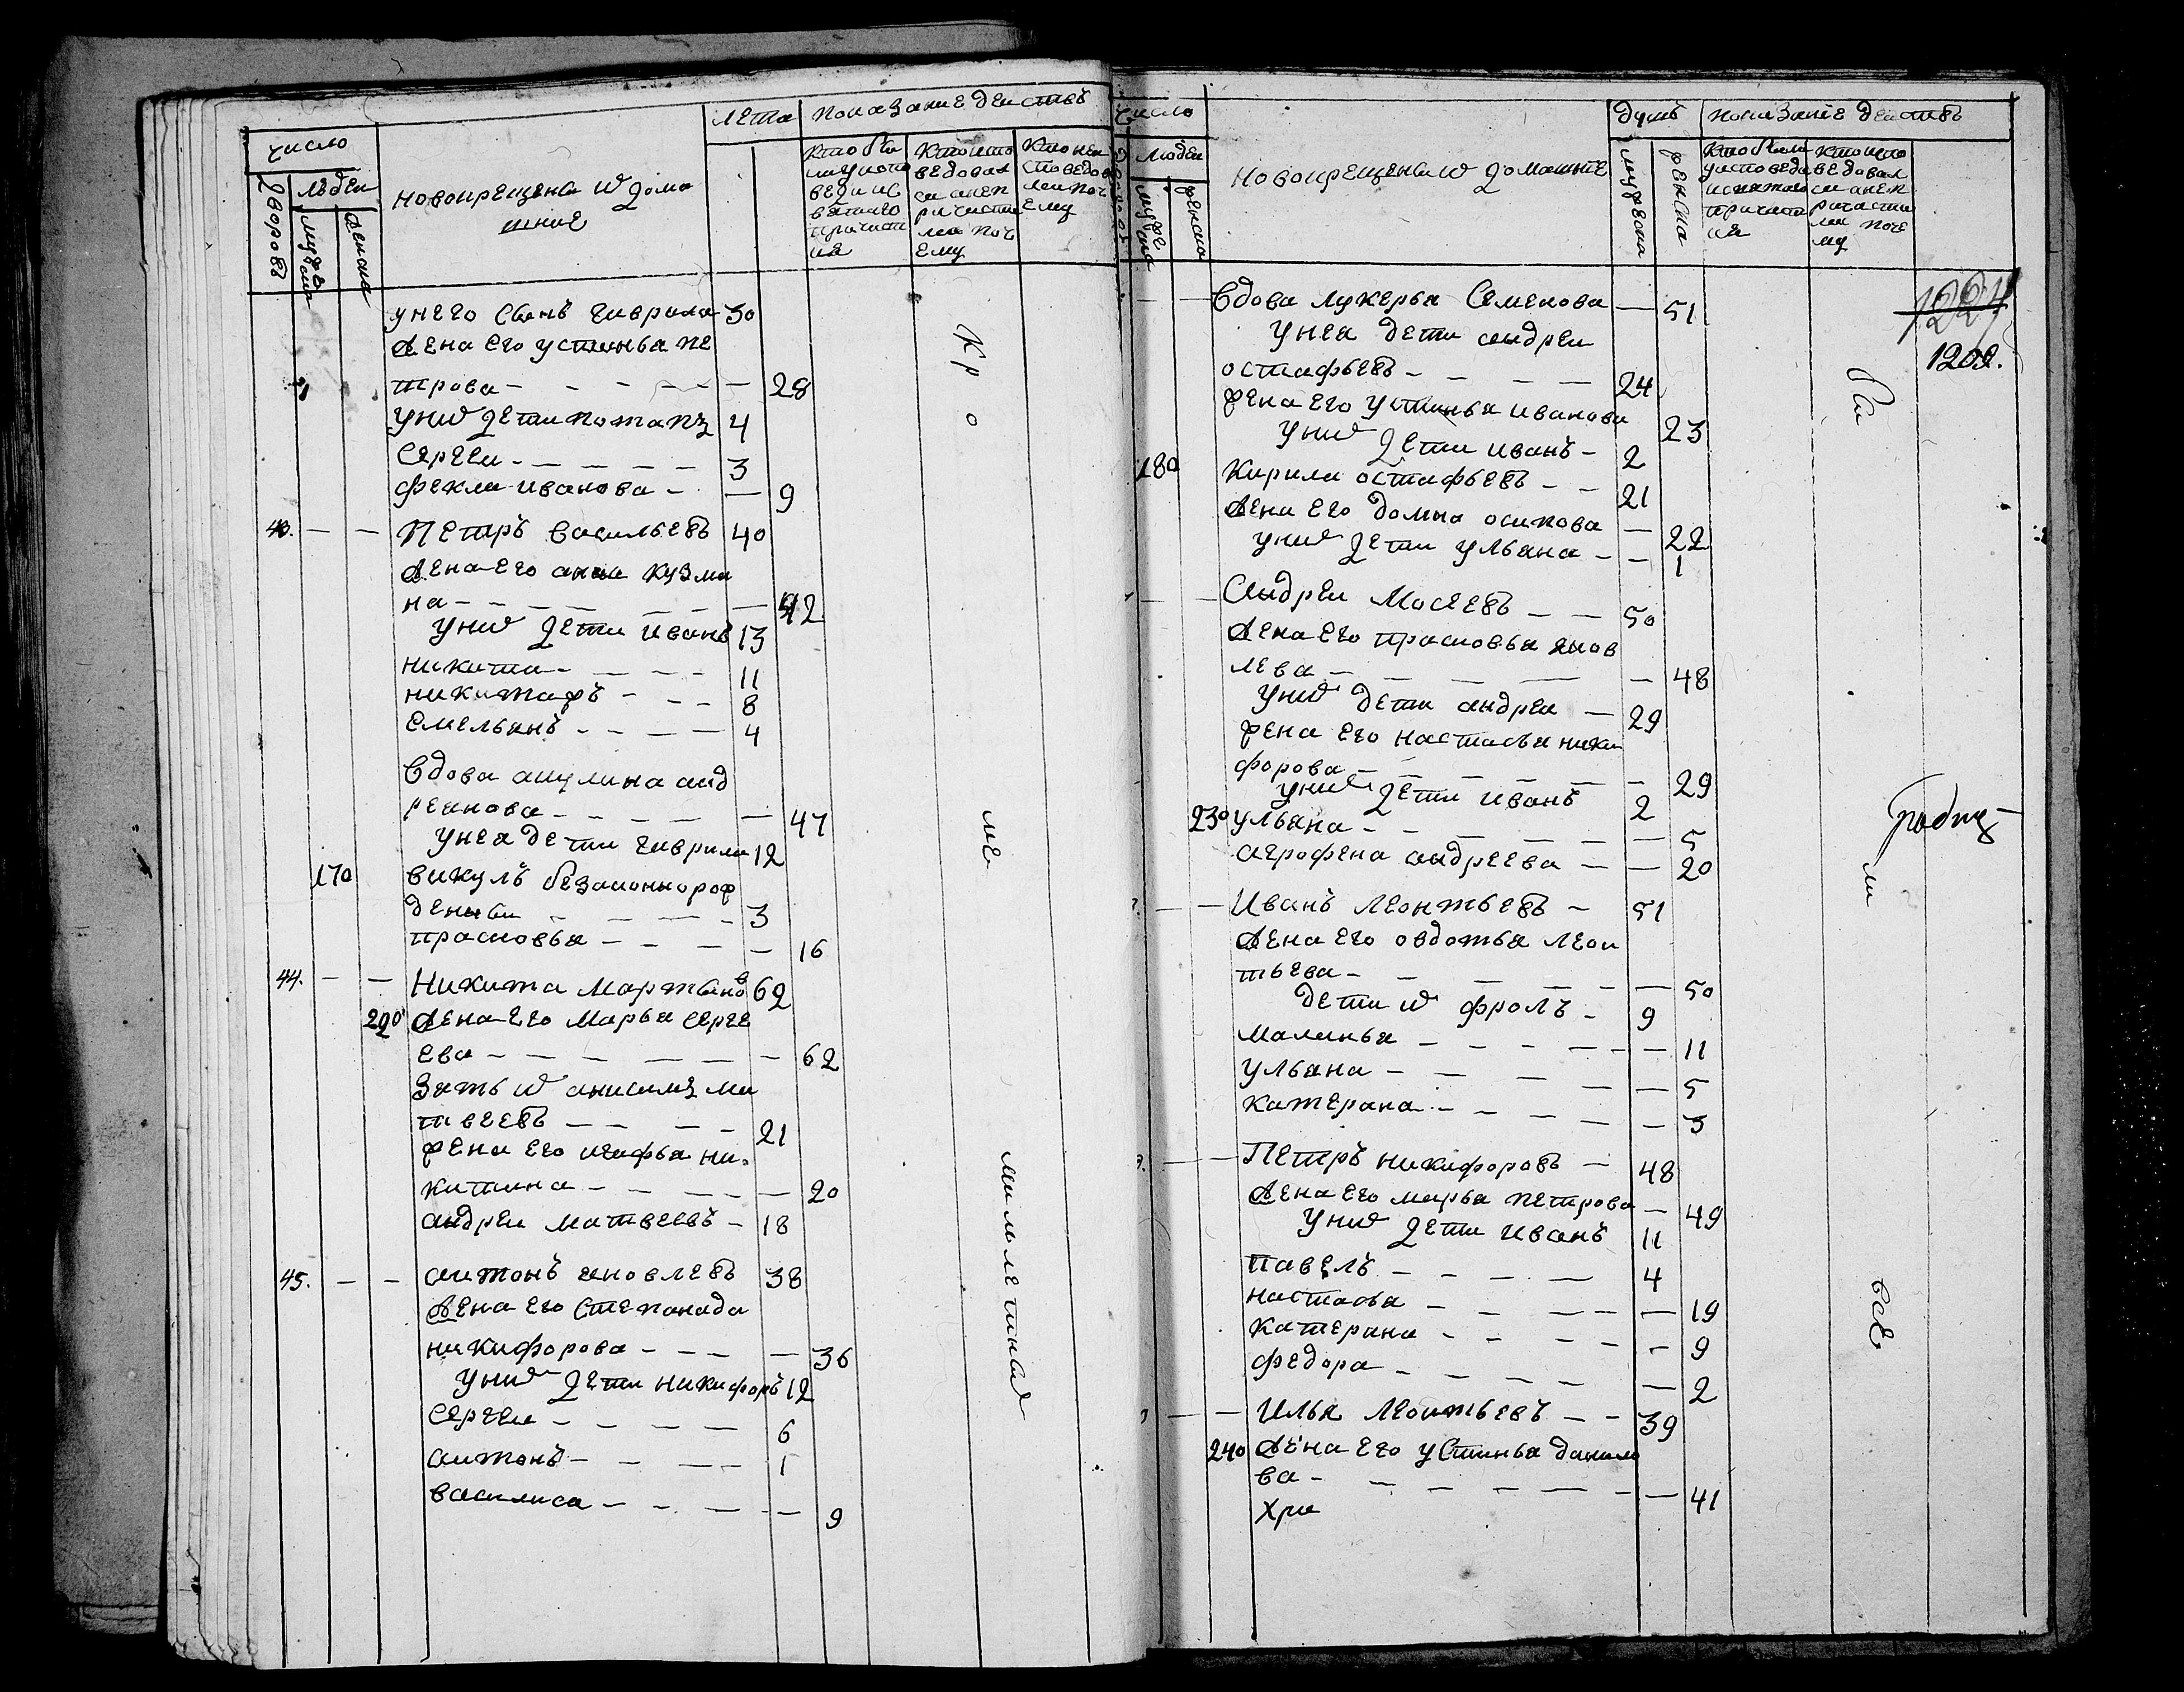 число
людеи
дворовъ
мужеска
женска
новокрещены и дома
шние
лета
показание деиствъ
кто бы
ли у испо
веди и с
вятаго
причаст
ия
кто испо
ведовал
ся а не п
ричасти
лся поч
ему
кто не и
споведо
лся поч
ему
у него сынъ гаврила 30
жена его устинья пе
трова - - - - - - 28
у них дети потапъ 4
сергеи - - - - - 3
фекла иванова - - 9
43. - - петръ васильевъ 40
жена его анна кузми
на - - - - - - - 42
у них дети иванъ 13
никита - - - - - 11
никитаръ - - - 8
емельянъ - - - - 4
вдова акулина анд
реянова - - - - - 47
у нея дети гаврила 12
170 викулъ безаконнорож
денны - - - - 3
прасковья - - - - 16
44. - - Никита мартыновъ 62
220 жена его марья серге
ева - - - - - - 62
зять их анисимъ ма
твеевъ - - - - 21
жена его агафья ни
китина - - - - - 20
андреи матвеевъ - 18
45. - - антонъ яковлевъ 38
жена его степанида
никифорова - - - - 36
у них дети никифоръ 12
сергеи - - - - 6
антонъ - - - - 1
василиса - - - - - 9
кр
о
ме
малолетных
число
людеи
мужеска
женска
новокрещены и домашние
душъ
мужеска
женска
показание деиствъ
кто были
у исповеди
и святаго
причаст
ия
кто испо
ведовал
ся а не п
ричасти
лся поче
му
1224
1202.
- - вдова лукерья Семенова - 51
у нея дети андреи
остафьевъ - - - - 24
жена его устинья иванова 23
у них дети иванъ - 2
180 кирила остафьевъ - - 21
жена его домна осипова - 22
у них дети ульяна - - 1
- - Андреи Мосеевъ - - 50
жена его прасковья яков
лева - - - - - 48
у них дети андреи - 29
жена его настасья ники
форова - - - - - - 29
у них дети иванъ 2
230 ульяна - - - - - - 5
агрофена андреева - - 20
- - Иванъ леонтьевъ - 51
жена его овдотья леон
тьева - - - - - - 50
дети их фролъ - 9
маланья - - - - - - 11
ульяна - - - - - 5
катерина - - - - - - 3
- - Петръ никифоровъ - 48
жена его марья петрова - 49
у них дети иванъ 11
павелъ - - - - 4
настасья - - - - - 19
катерина - - - - - 9
федора - - - - - - 2
- - Илья леонтьевъ - - 39
240 жена его устинья данило
ва - - - - - - - 41
бы
ли
все